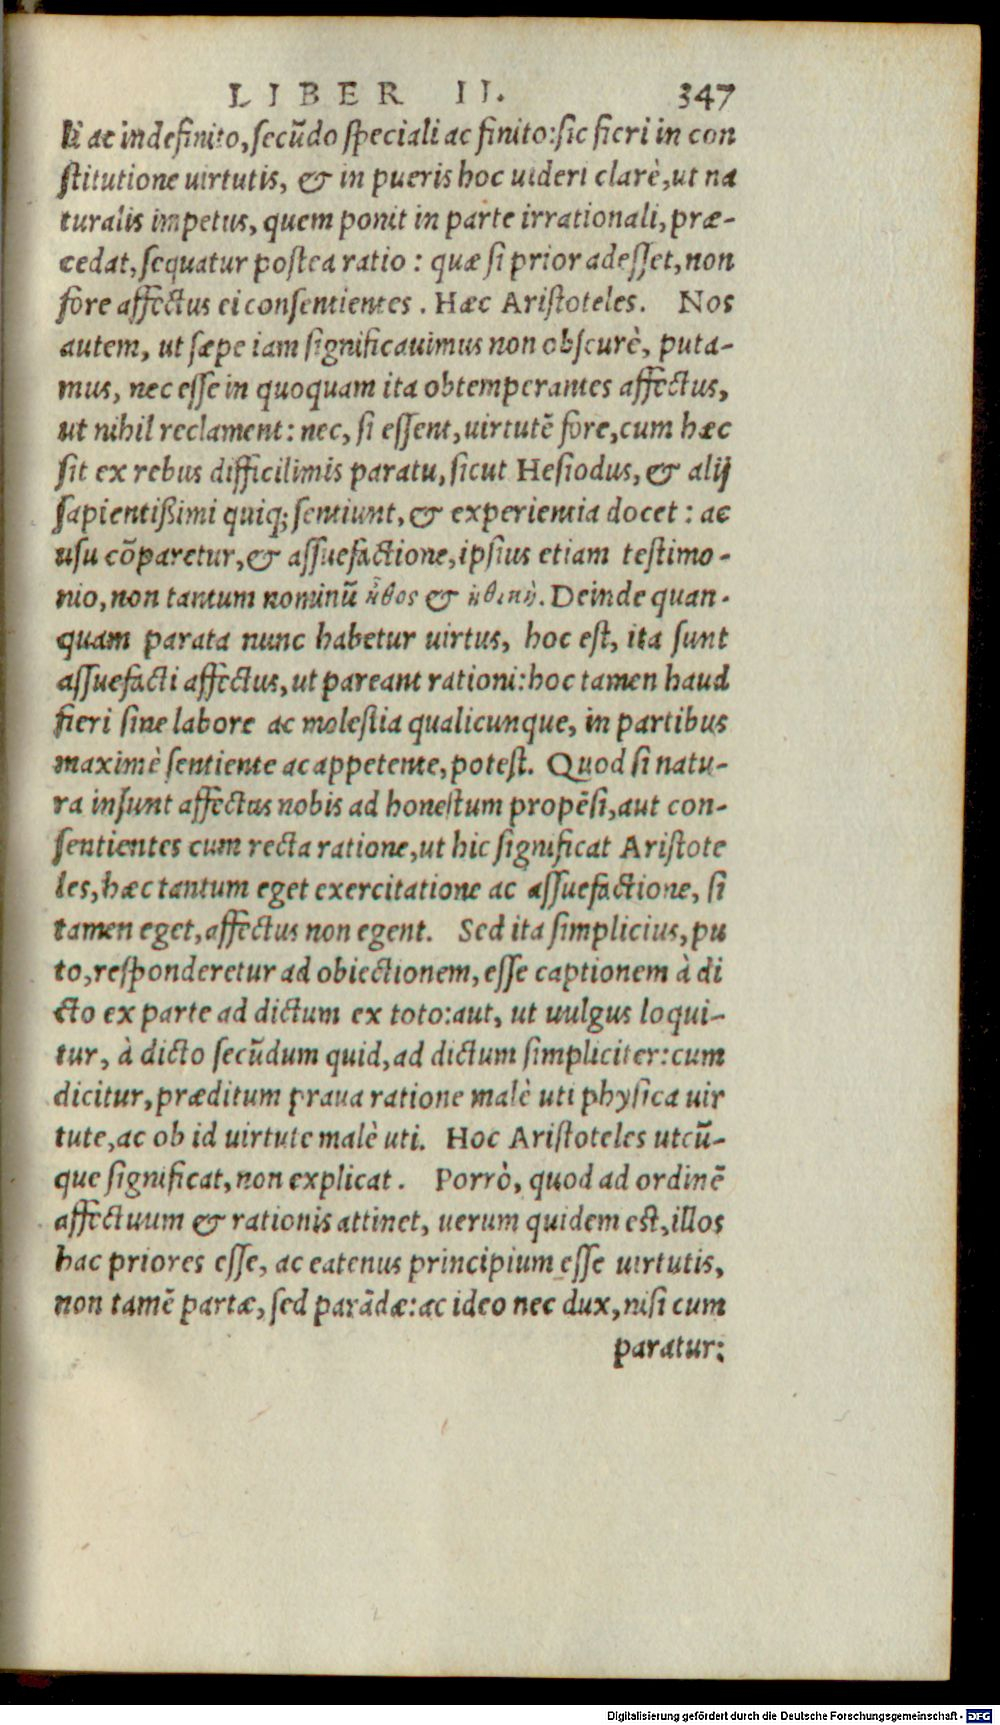 LIBER II. 347
li ac indefinito, secũdo speciali ac finito: sic fieri in con
stitutione uirtutis, & in pueris hoc uideri clarè, ut na
turalis impetus, quem ponit in parte irrationali, præ-
cedat, sequatur postea ratio: quæ si prior adesset, non
fore affectus ei consentientes. Hæc Aristoteles. Nos
autem, ut sæpe iam significauimus non obscurè, puta-
mus, nec esse in quoquam ita obtemperantes affectus,
ut nihil reclament: nec, si essent, uirtutẽ fore, cum hæc
sit ex rebus difficilimis paratu, sicut Hesiodus, & alij
sapientißimi quiq; sentiunt, & experientia docet: ac
usu cõparetur, & assuefactione, ipsius etiam testimo-
nio, non tantum nominũ ἦθος & ἠθικὴ. Deinde quan-
quam parata nunc habetur uirtus, hoc est, ita sunt
assuefacti affectus, ut pareant rationi: hoc tamen haud
fieri sine labore ac molestia qualicunque, in partibus
maximè sentiente ac appetente, potest. Quod si natu-
ra insunt affectus nobis ad honestum propẽsi, aut con-
sentientes cum recta ratione, ut hic significat Aristote
les, hæc tantum eget exercitatione ac assuefactione, si
tamen eget, affectus non egent. Sed ita simplicius, pu
to, responderetur ad obiectionem, esse captionem à di
cto ex parte ad dictum ex toto: aut, ut uulgus loqui-
tur, à dicto secũdum quid, ad dictum simpliciter: cum
dicitur, præditum praua ratione malè uti physica uir
tute, ac ob id uirtute malè uti. Hoc Aristoteles utcũ-
que significat, non explicat. Porrò, quod ad ordinẽ
affectuum & rationis attinet, uerum quidem est, illos
hac priores esse, ac eatenus principium esse uirtutis,
non tamẽ partæ, sed parãdæ: ac ideo nec dux, nisi cum
paratur:
Digitalisierung gefördert durch die Deutsche Forschungsgemeinschaft - DFG